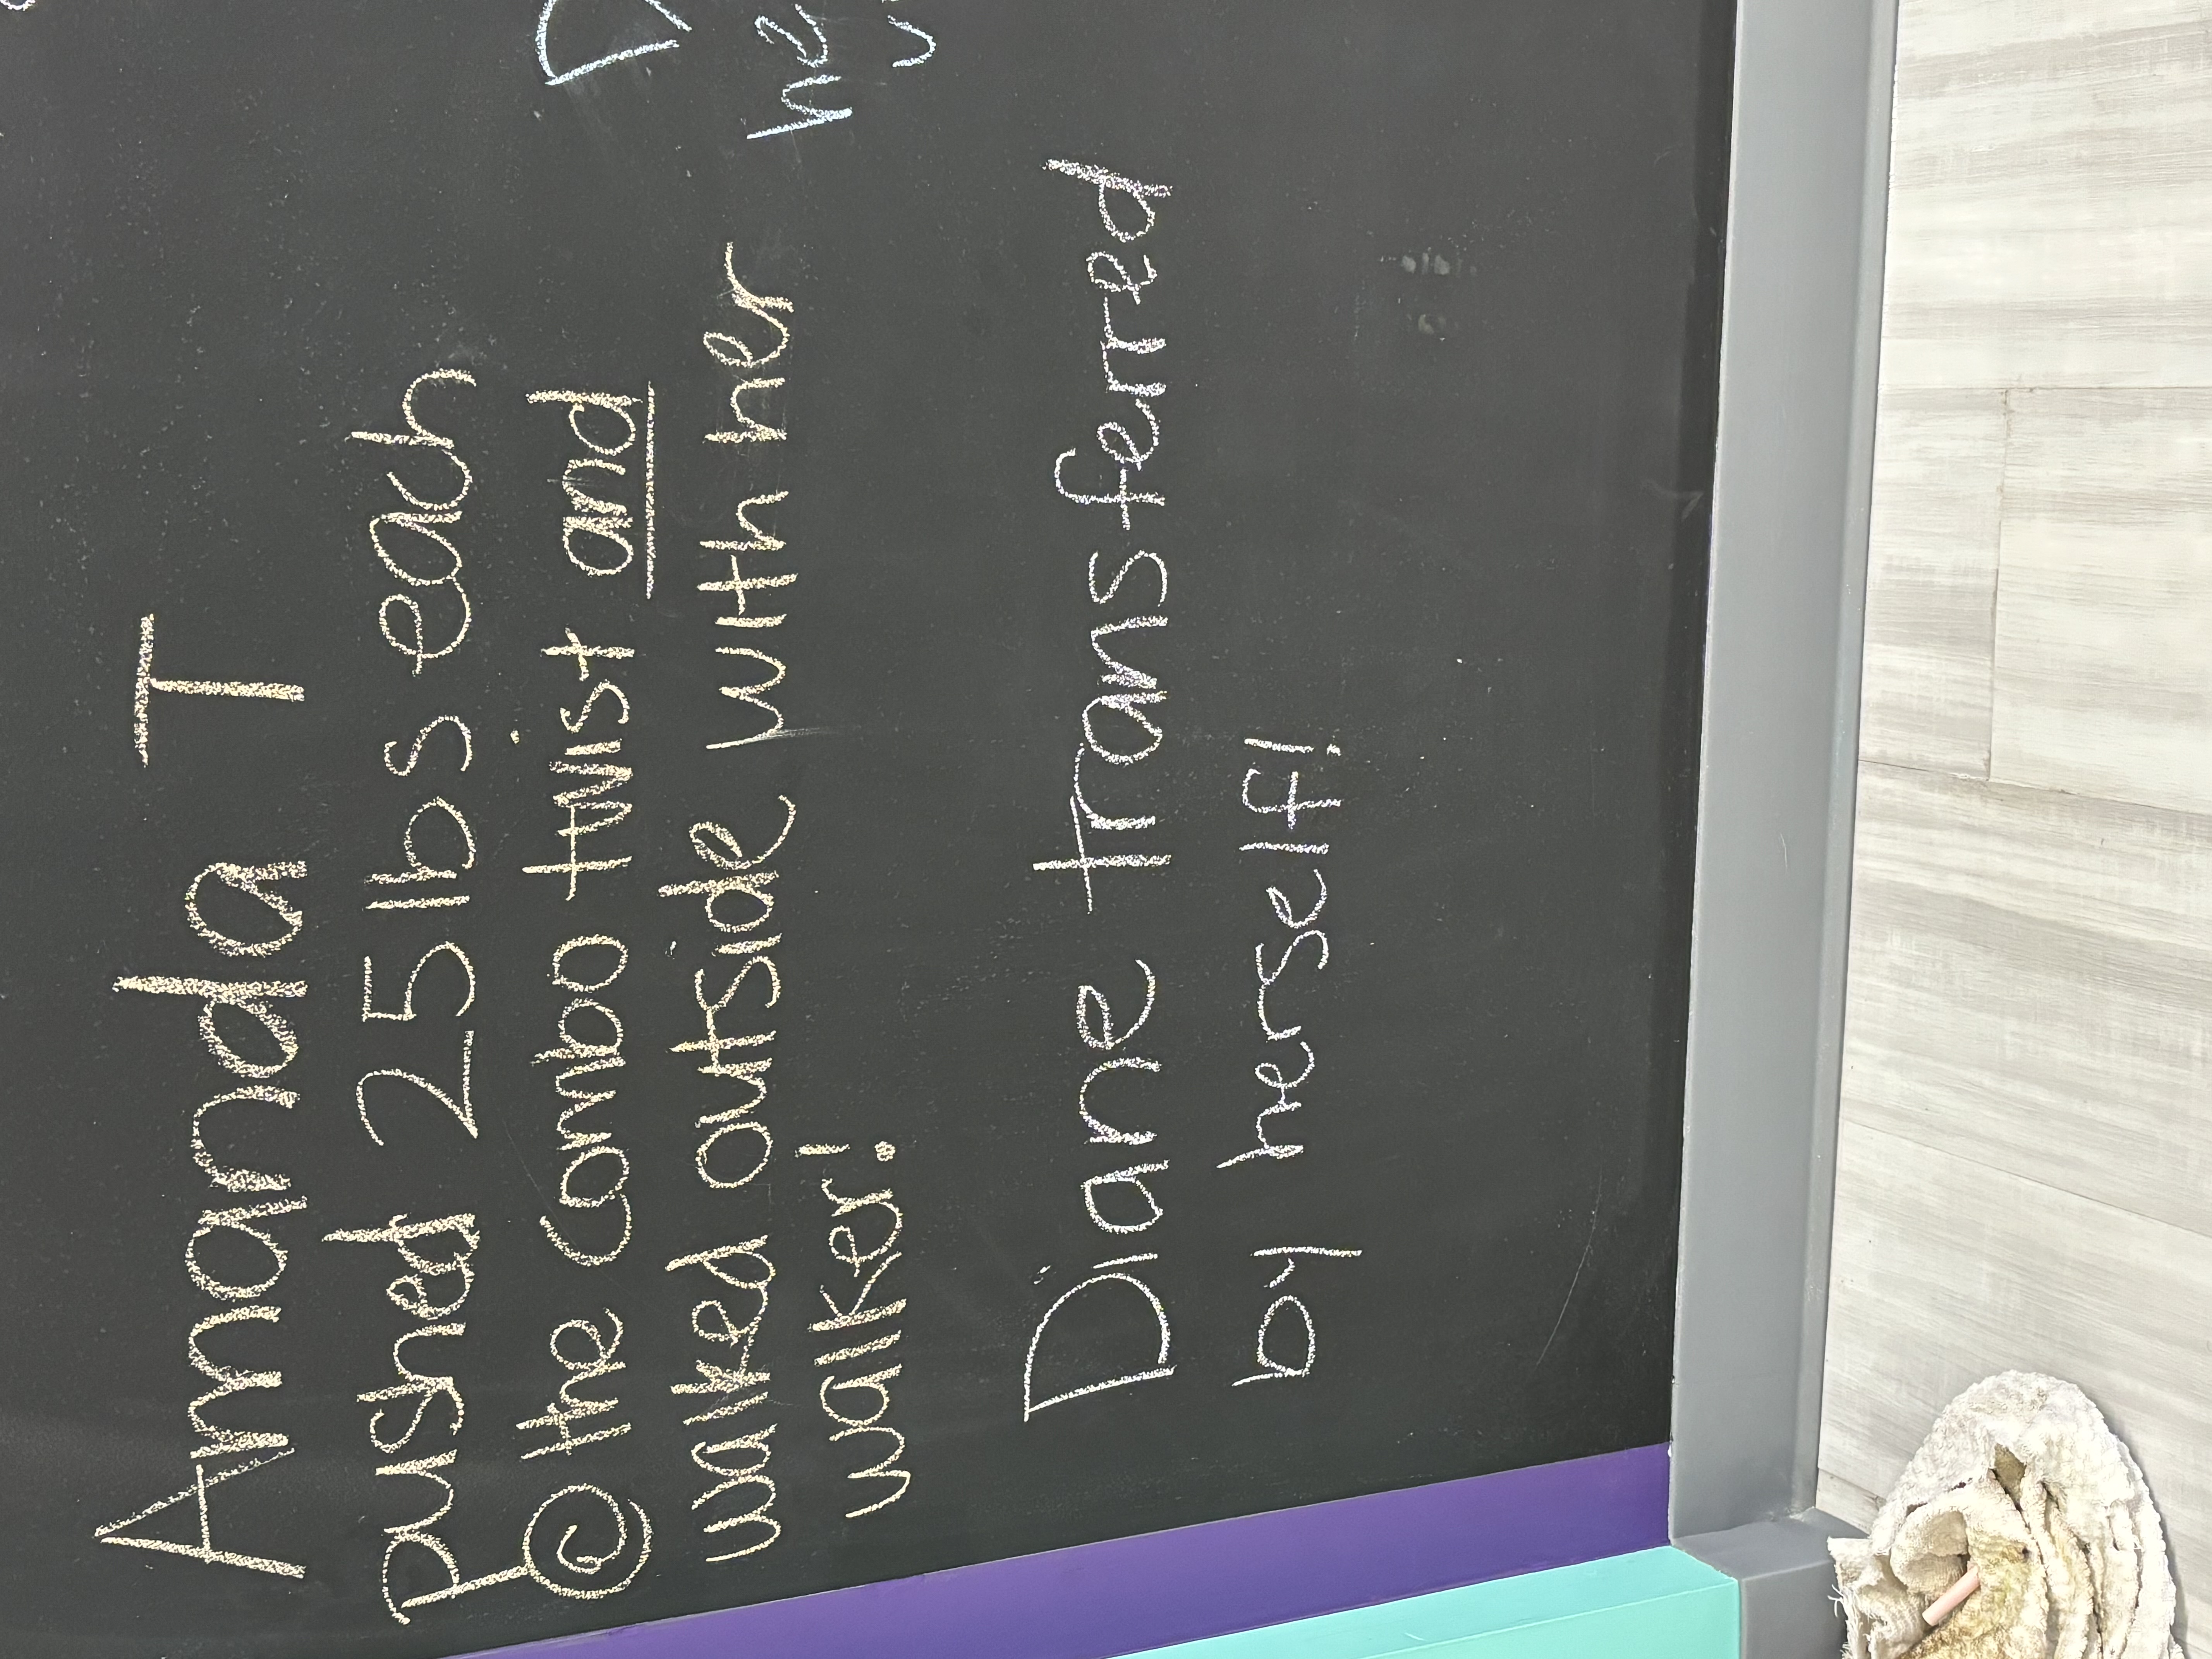 Amanda T
pushed 25 lbs each
@ the combo twist and
walked outside with her
walker!
Diane transferred
by herself!